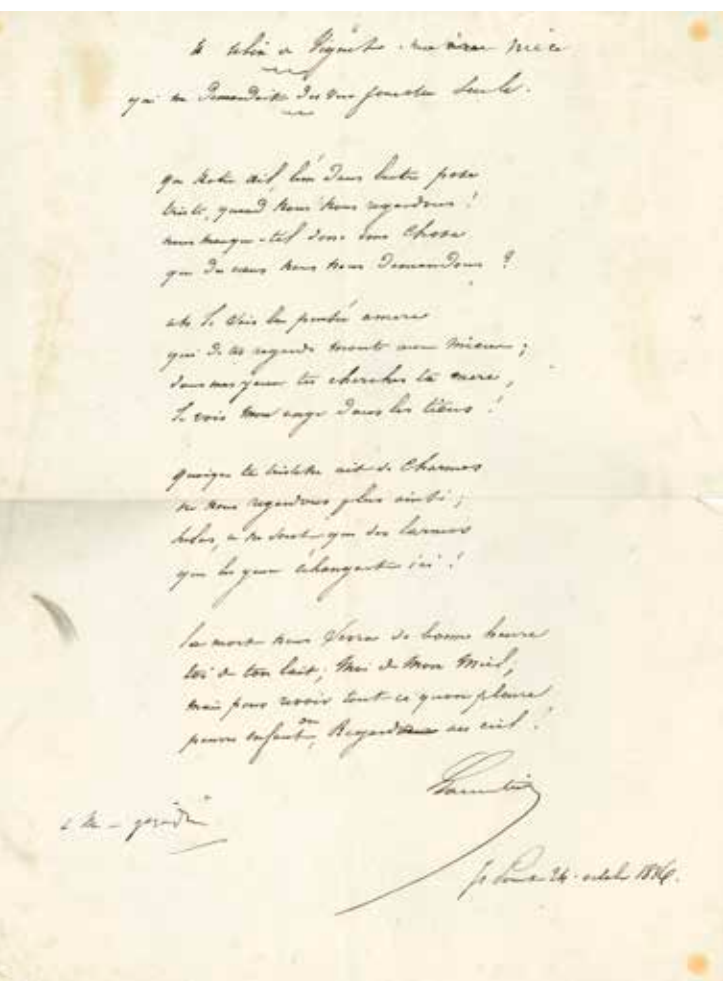 de Vignet ma nièce
qui me demandait des vers pour elle seule.
que notre œil, l'un dans l'autre pose
triste, quand nous nous regardons !
nous manque-t-il donc une chose
que du cœur nous nous demandons ?
ah je sais la pensée amere
qui de tes regards monte aux miens ;
dans mes yeux tu cherches ta mere,
Je vois mon ange dans les tiens !
quoique ta tristesse ait de charmes
ne nous regardons plus ainsi ;
helas, ce ne sont que des larmes
que les yeux échangent ici !
la mort nous sevra de bonne heure
toi de ton lait, moi de mon miel,
mais pour revoir tout ce qu'on pleure
pauvre enfant, Regard on au ciel !
Lamartine
St Point 24 octobre